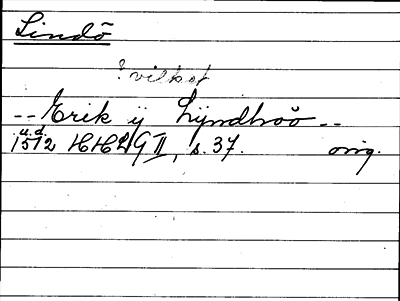 Lindö
? vilket
-- Erik ÿ Lÿndhöö --
u.d.
1512 HH2G II, s. 37. orig.